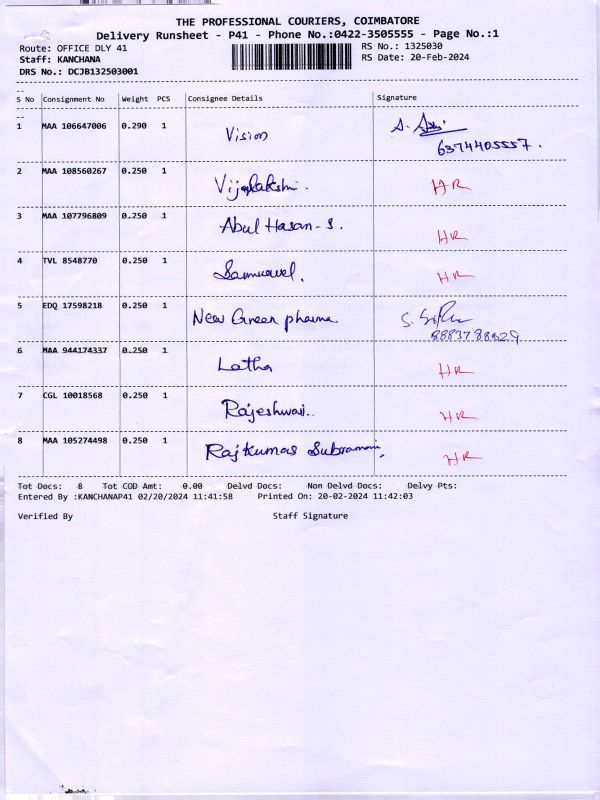 THE PROFESSIONAL COURIERS, COIMBATORE
Delivery Runsheet - P41 - Phone No.:0422-3505555 - Page No.:1
Route: OFFICE DLY 41 RS No.: 1325030
Staff: KANCHANA RS Date: 20-Feb-2024
DRS No.: DCJB132503001
S No Consignment No Weight PCS Consignee Details Signature
1 MAA 106647006 0.290 1 Vision
6374405557.
2 MAA 108560267 0.250 1 Vijaylakshmi. HR
3 MAA 107796809 0.250 1 Abul Hasan-S. HR
4 TVL 8548770 0.250 1 Samuavel. HR
5 EDQ 17598218 0.250 1 New Green pharma
8883788829
6 MAA 944174337 0.250 1 Latha HR
7 CGL 10018568 0.250 1 Rajeshwari.. HR
8 MAA 105274498 0.250 1 Rajkumar Subramani, HR
Tot Docs: 8 Tot COD Amt: 0.00 Delvd Docs: Non Delvd Docs: Delvy Pts:
Entered By :KANCHANAP41 02/20/2024 11:41:58 Printed On: 20-02-2024 11:42:03
Verified By Staff Signature